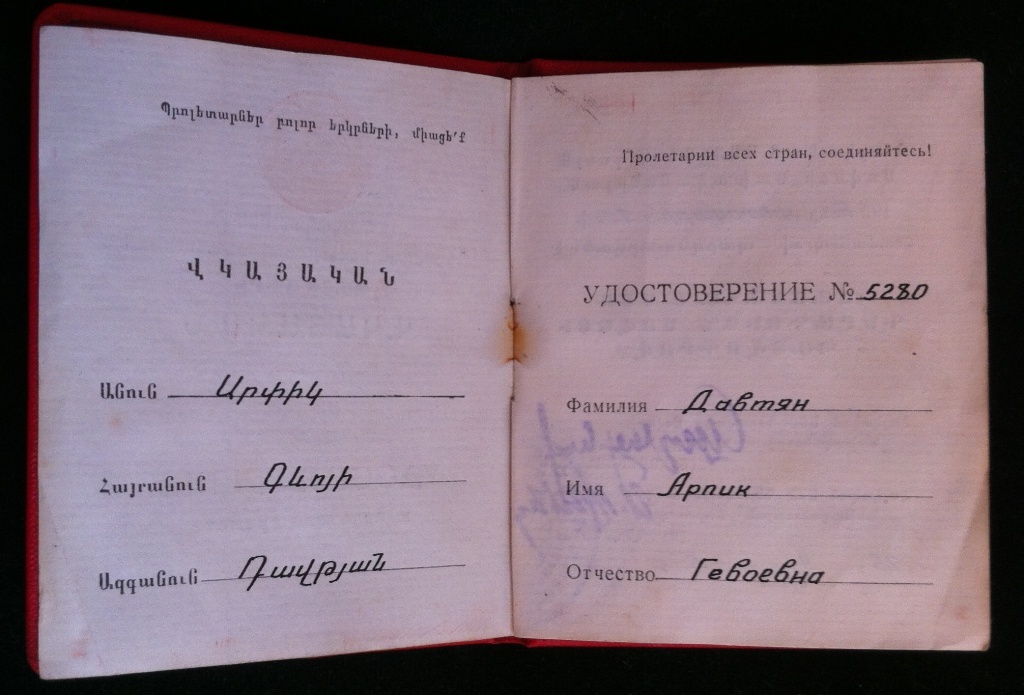 Պրոլետարներ բոլոր երկրների, միացե՛ք
ՎԿԱՅԱԿԱՆ
Անուն Արփիկ
Հայրանուն Գևոյի
Ազգանուն Դավթյան
Пролетарии всех стран, соединяйтесь!
УДОСТОВЕРЕНИЕ № 5280
Фамилия Давтян
Имя Арпик
Отчество Гевоевна